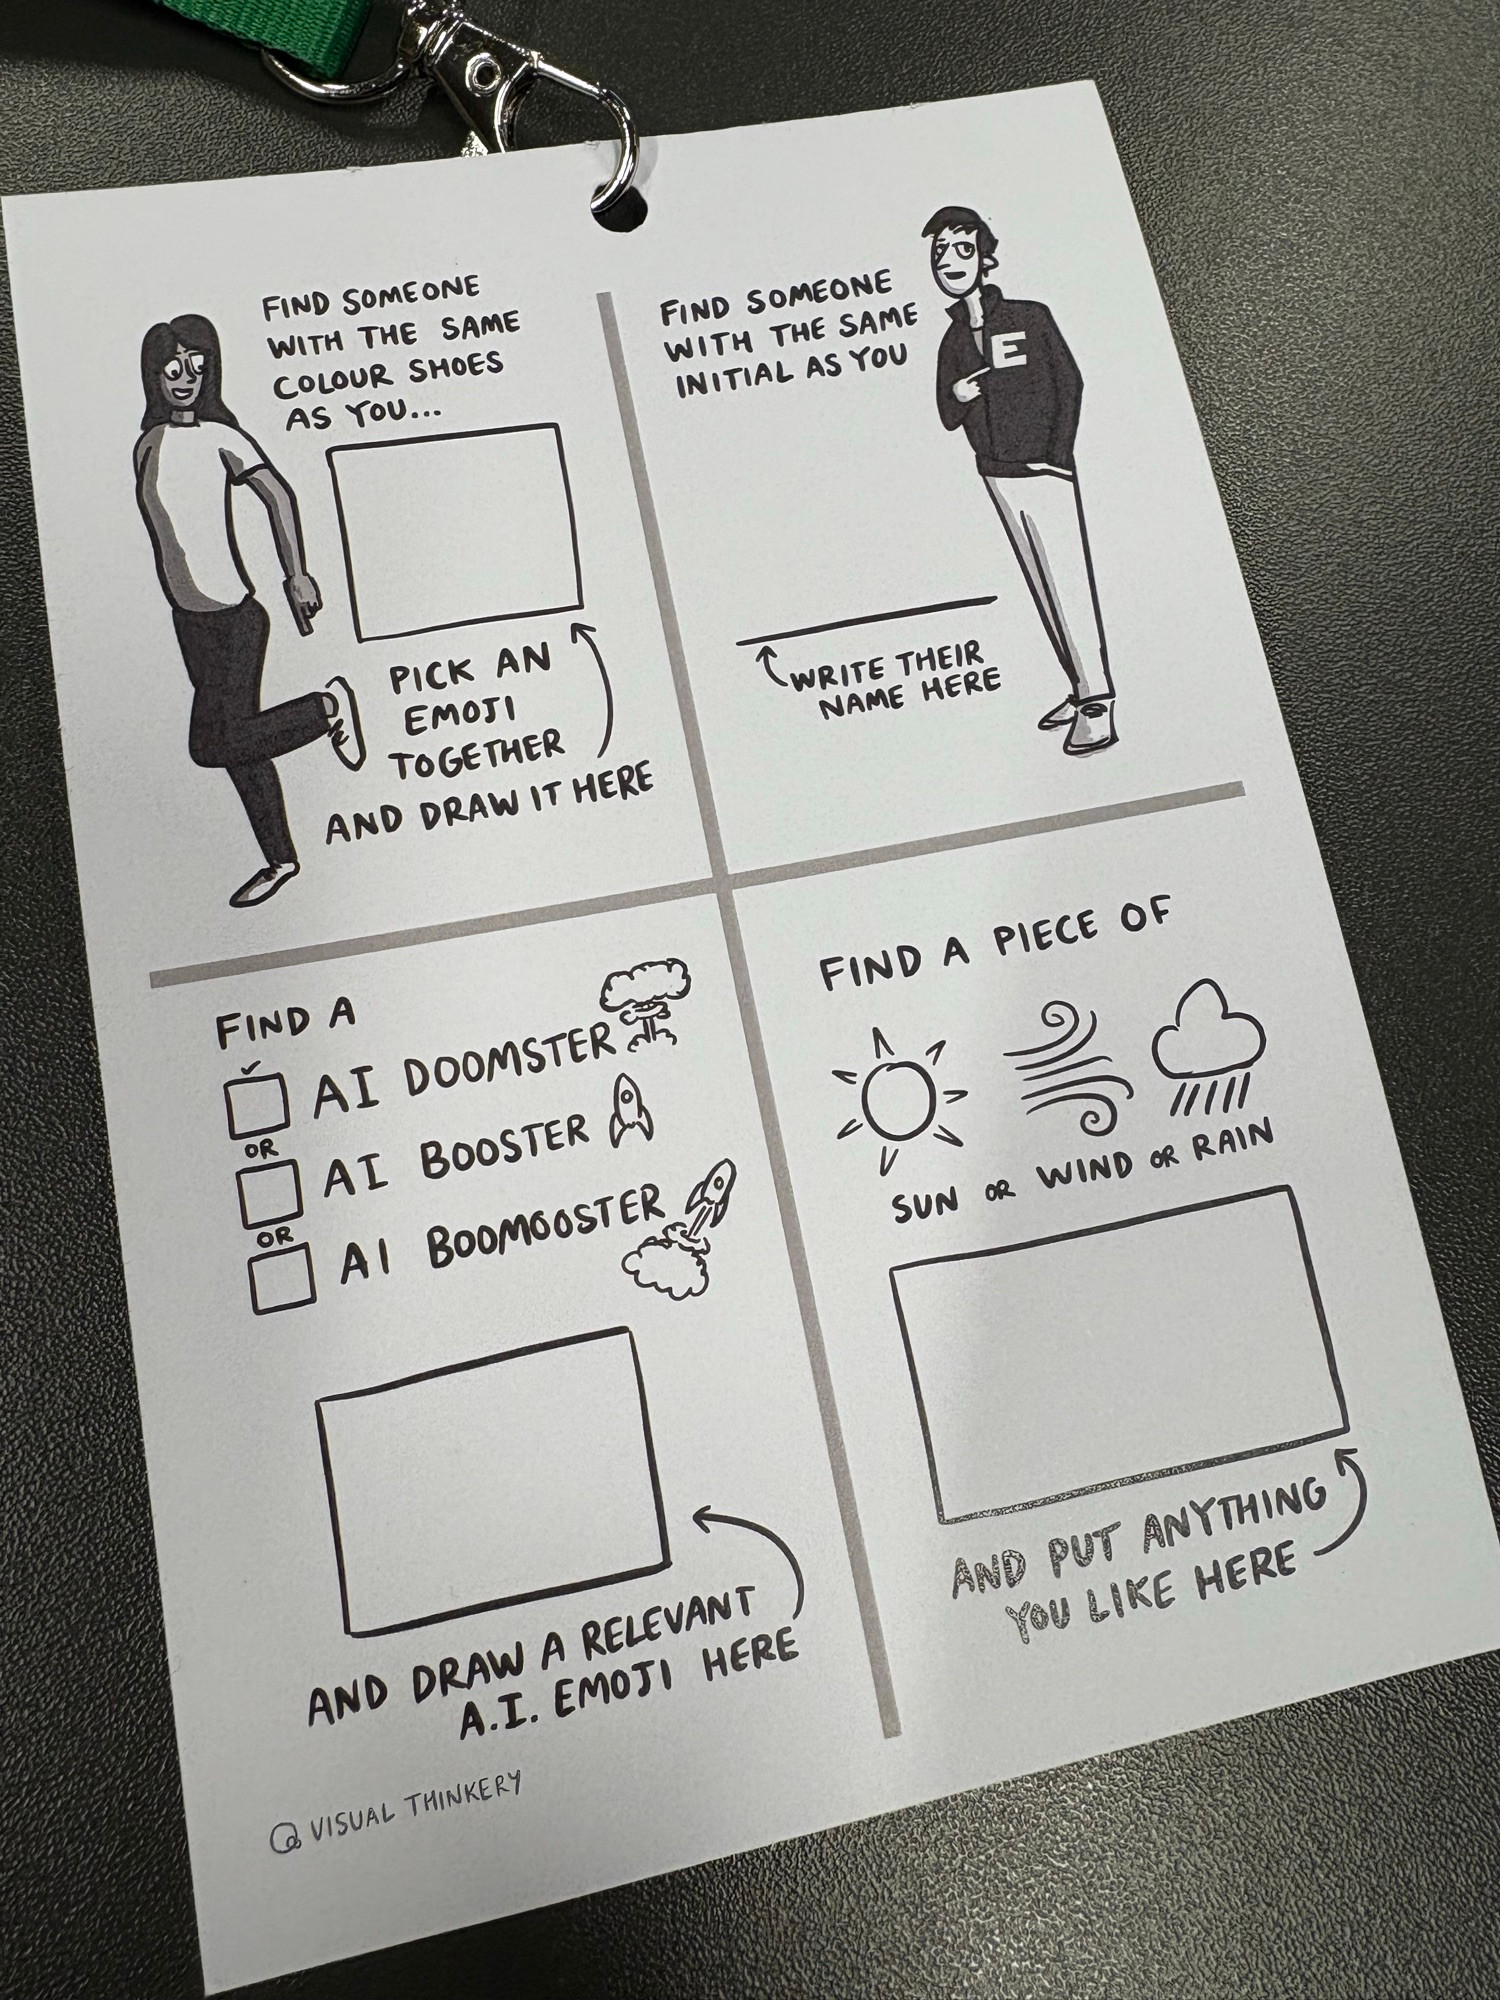 FIND SOMEONE
WITH THE SAME
COLOUR SHOES
AS YOU...
PICK AN
EMOJI
TOGETHER
AND DRAW IT HERE
FIND SOMEONE
WITH THE SAME
INITIAL AS YOU
E
WRITE THEIR
NAME HERE
FIND A
AI DOOMSTER
OR
AI BOOSTER
OR
AI BOOMOOSTER
AND DRAW A RELEVANT
A.I. EMOJI HERE
FIND A PIECE OF
SUN OR WIND OR RAIN
AND PUT ANYTHING
YOU LIKE HERE
@ VISUAL THINKERY